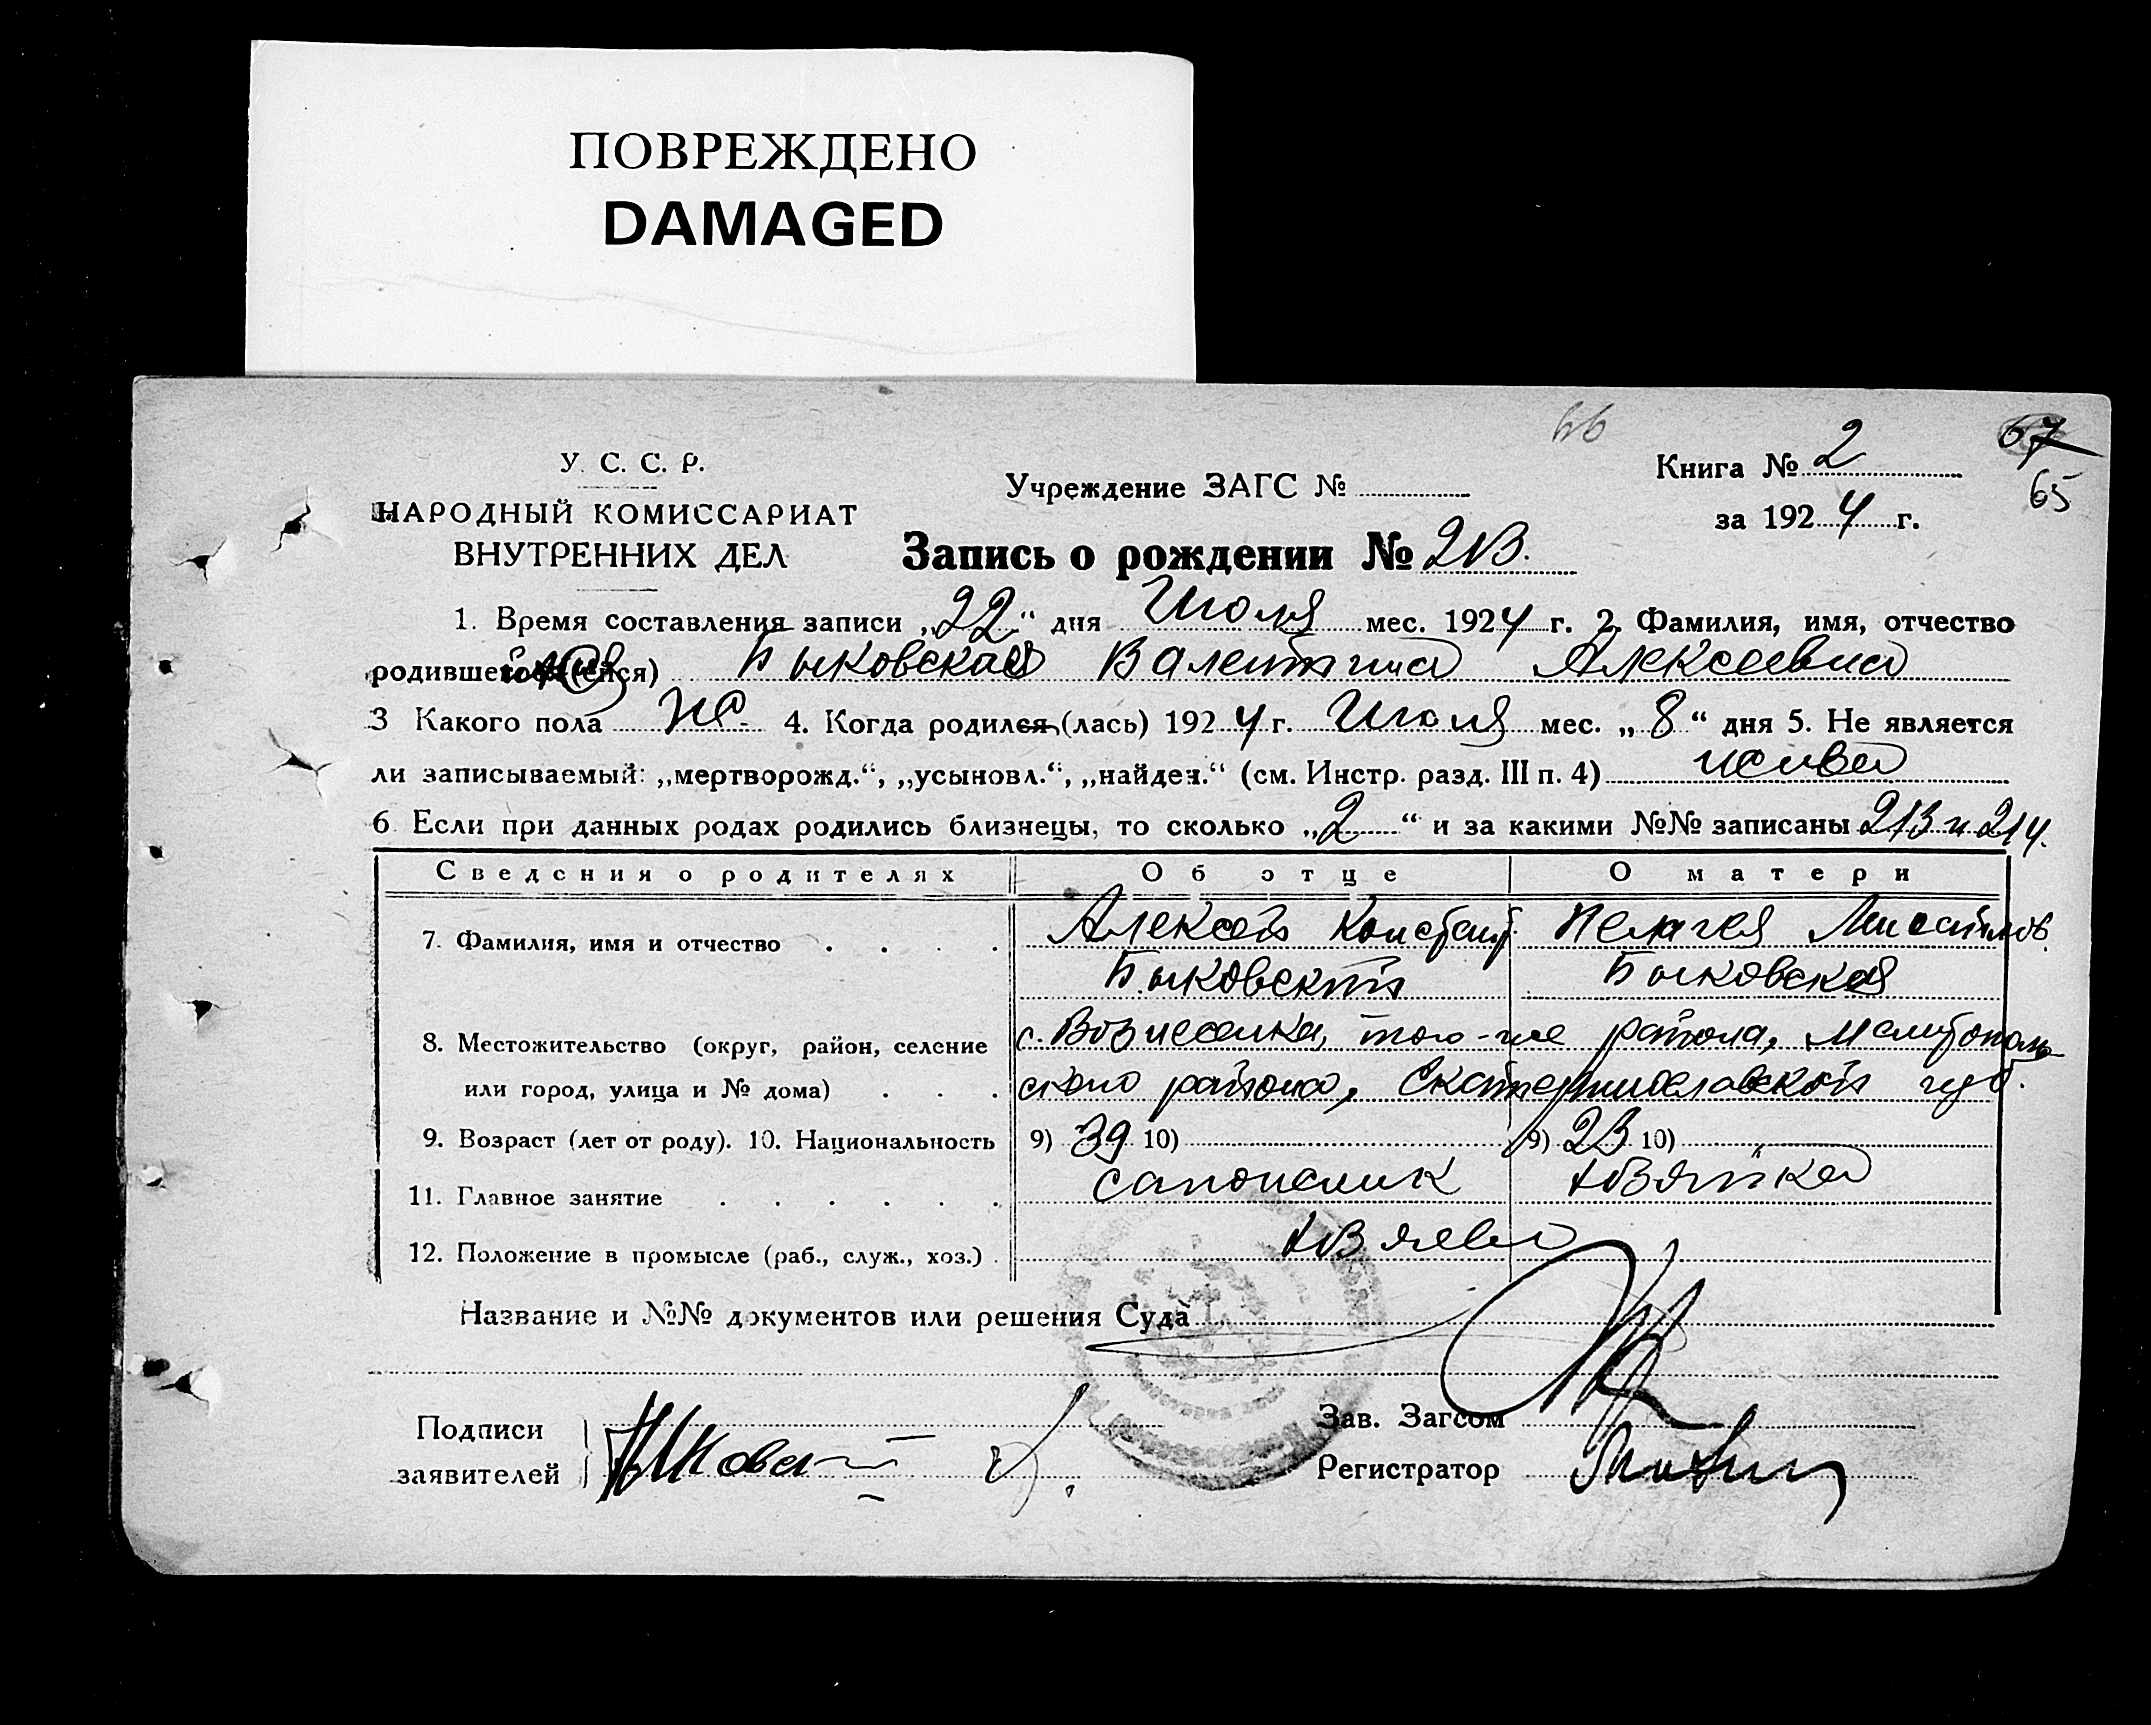 ПОВРЕЖДЕНО
DAMAGED
66
67
65
У. С. С. Р.
НАРОДНЫЙ КОМИССАРИАТ
ВНУТРЕННИХ ДЕЛ
Учреждение ЗАГС №
Книга № 2
за 1924 г.
Запись о рождении № 213.
1. Время составления записи „22“ дня Июля мес. 1924 г. 2. Фамилия, имя, отчество
родившегося (ейся) Быковская Валентина Алексеевна
3 Какого пола ж. 4. Когда родился (лась) 1924 г. Июля мес. „8“ дня 5. Не является
ли записываемый: „мертворожд.“, „усыновл.“, „найден.“ (см. Инстр. разд. III п. 4) жива
6. Если при данных родах родились близнецы, то сколько „2“ и за какими №№ записаны 213 и 214.
Сведения о родителях Об отце О матери
7. Фамилия, имя и отчество Алексей Констант. Пелагея
Быковский Быковская
8. Местожительство (округ, район, селение с. Вознесенка, того-же района, Мелитополь-
или город, улица и № дома) ского района, Екатеринославской губ.
9. Возраст (лет от роду). 10. Национальность 9) 39 10) 9) 23 10)
11. Главное занятие сапожник хозяйка
12. Положение в промысле (раб., служ., хоз.)
Название и №№ документов или решения Суда
Подписи
заявителей
Зав. Загсом
Регистратор